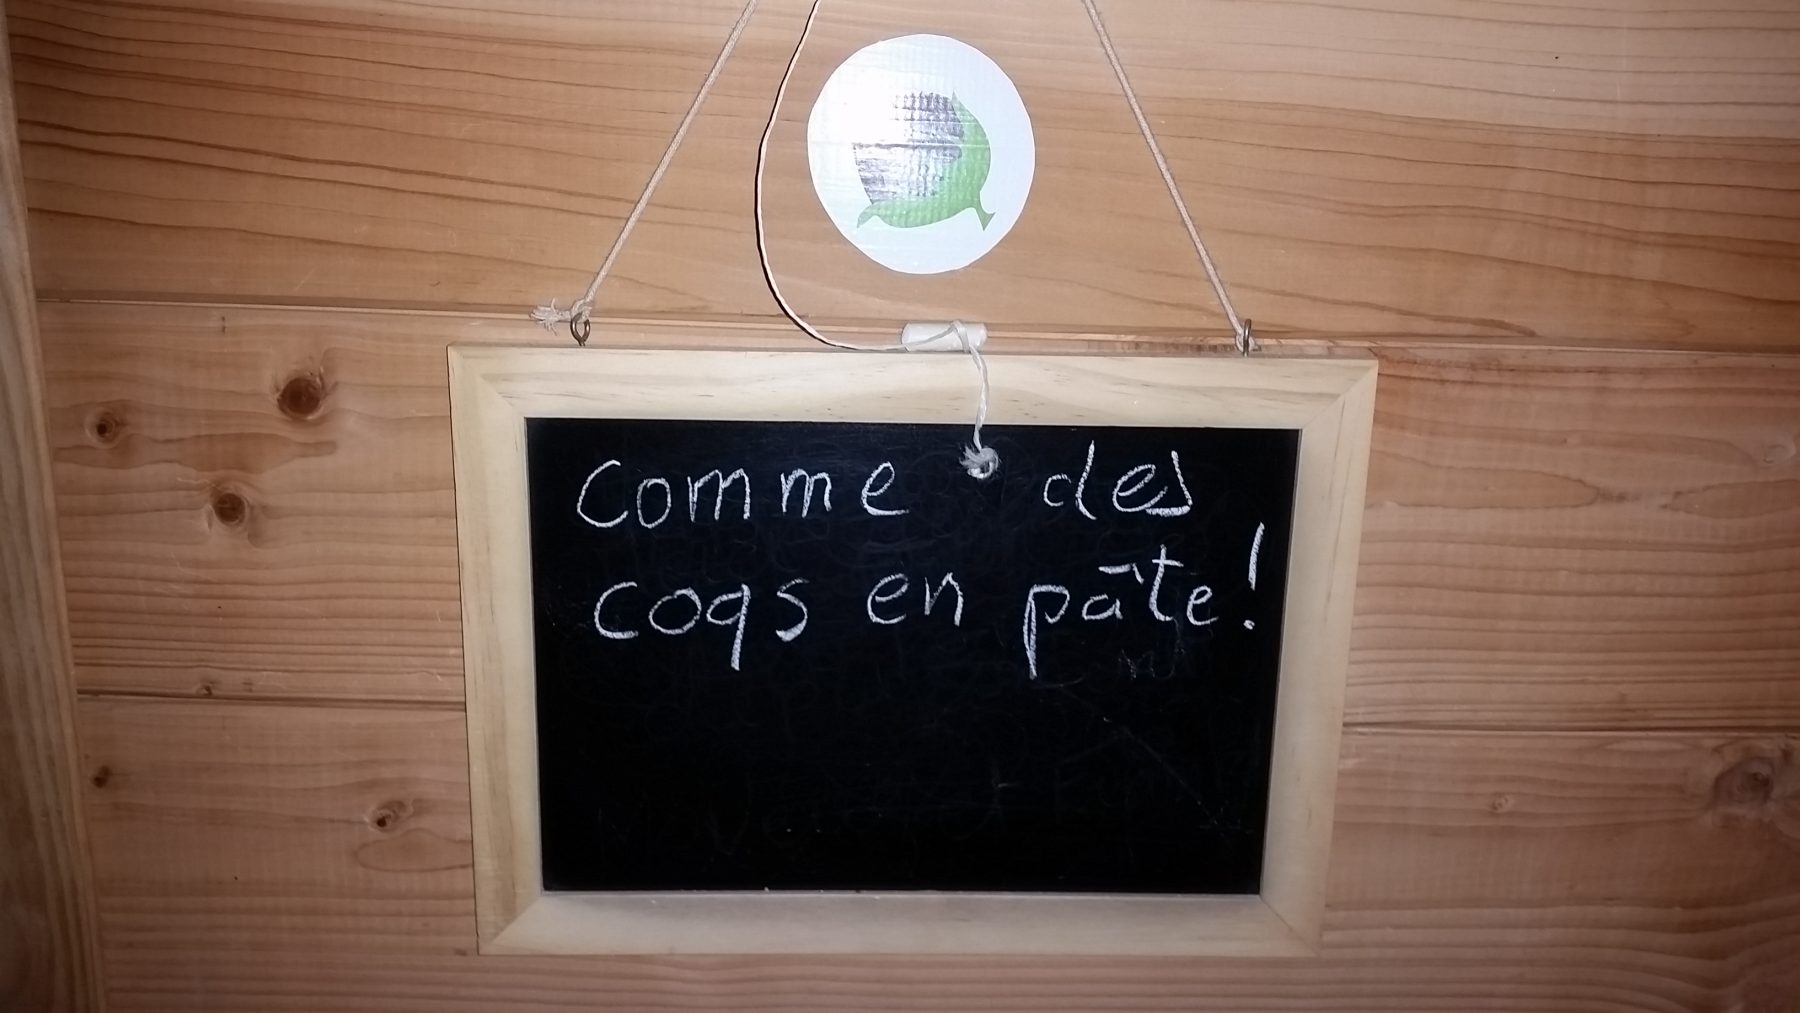 Comme des
coqs en pâte!